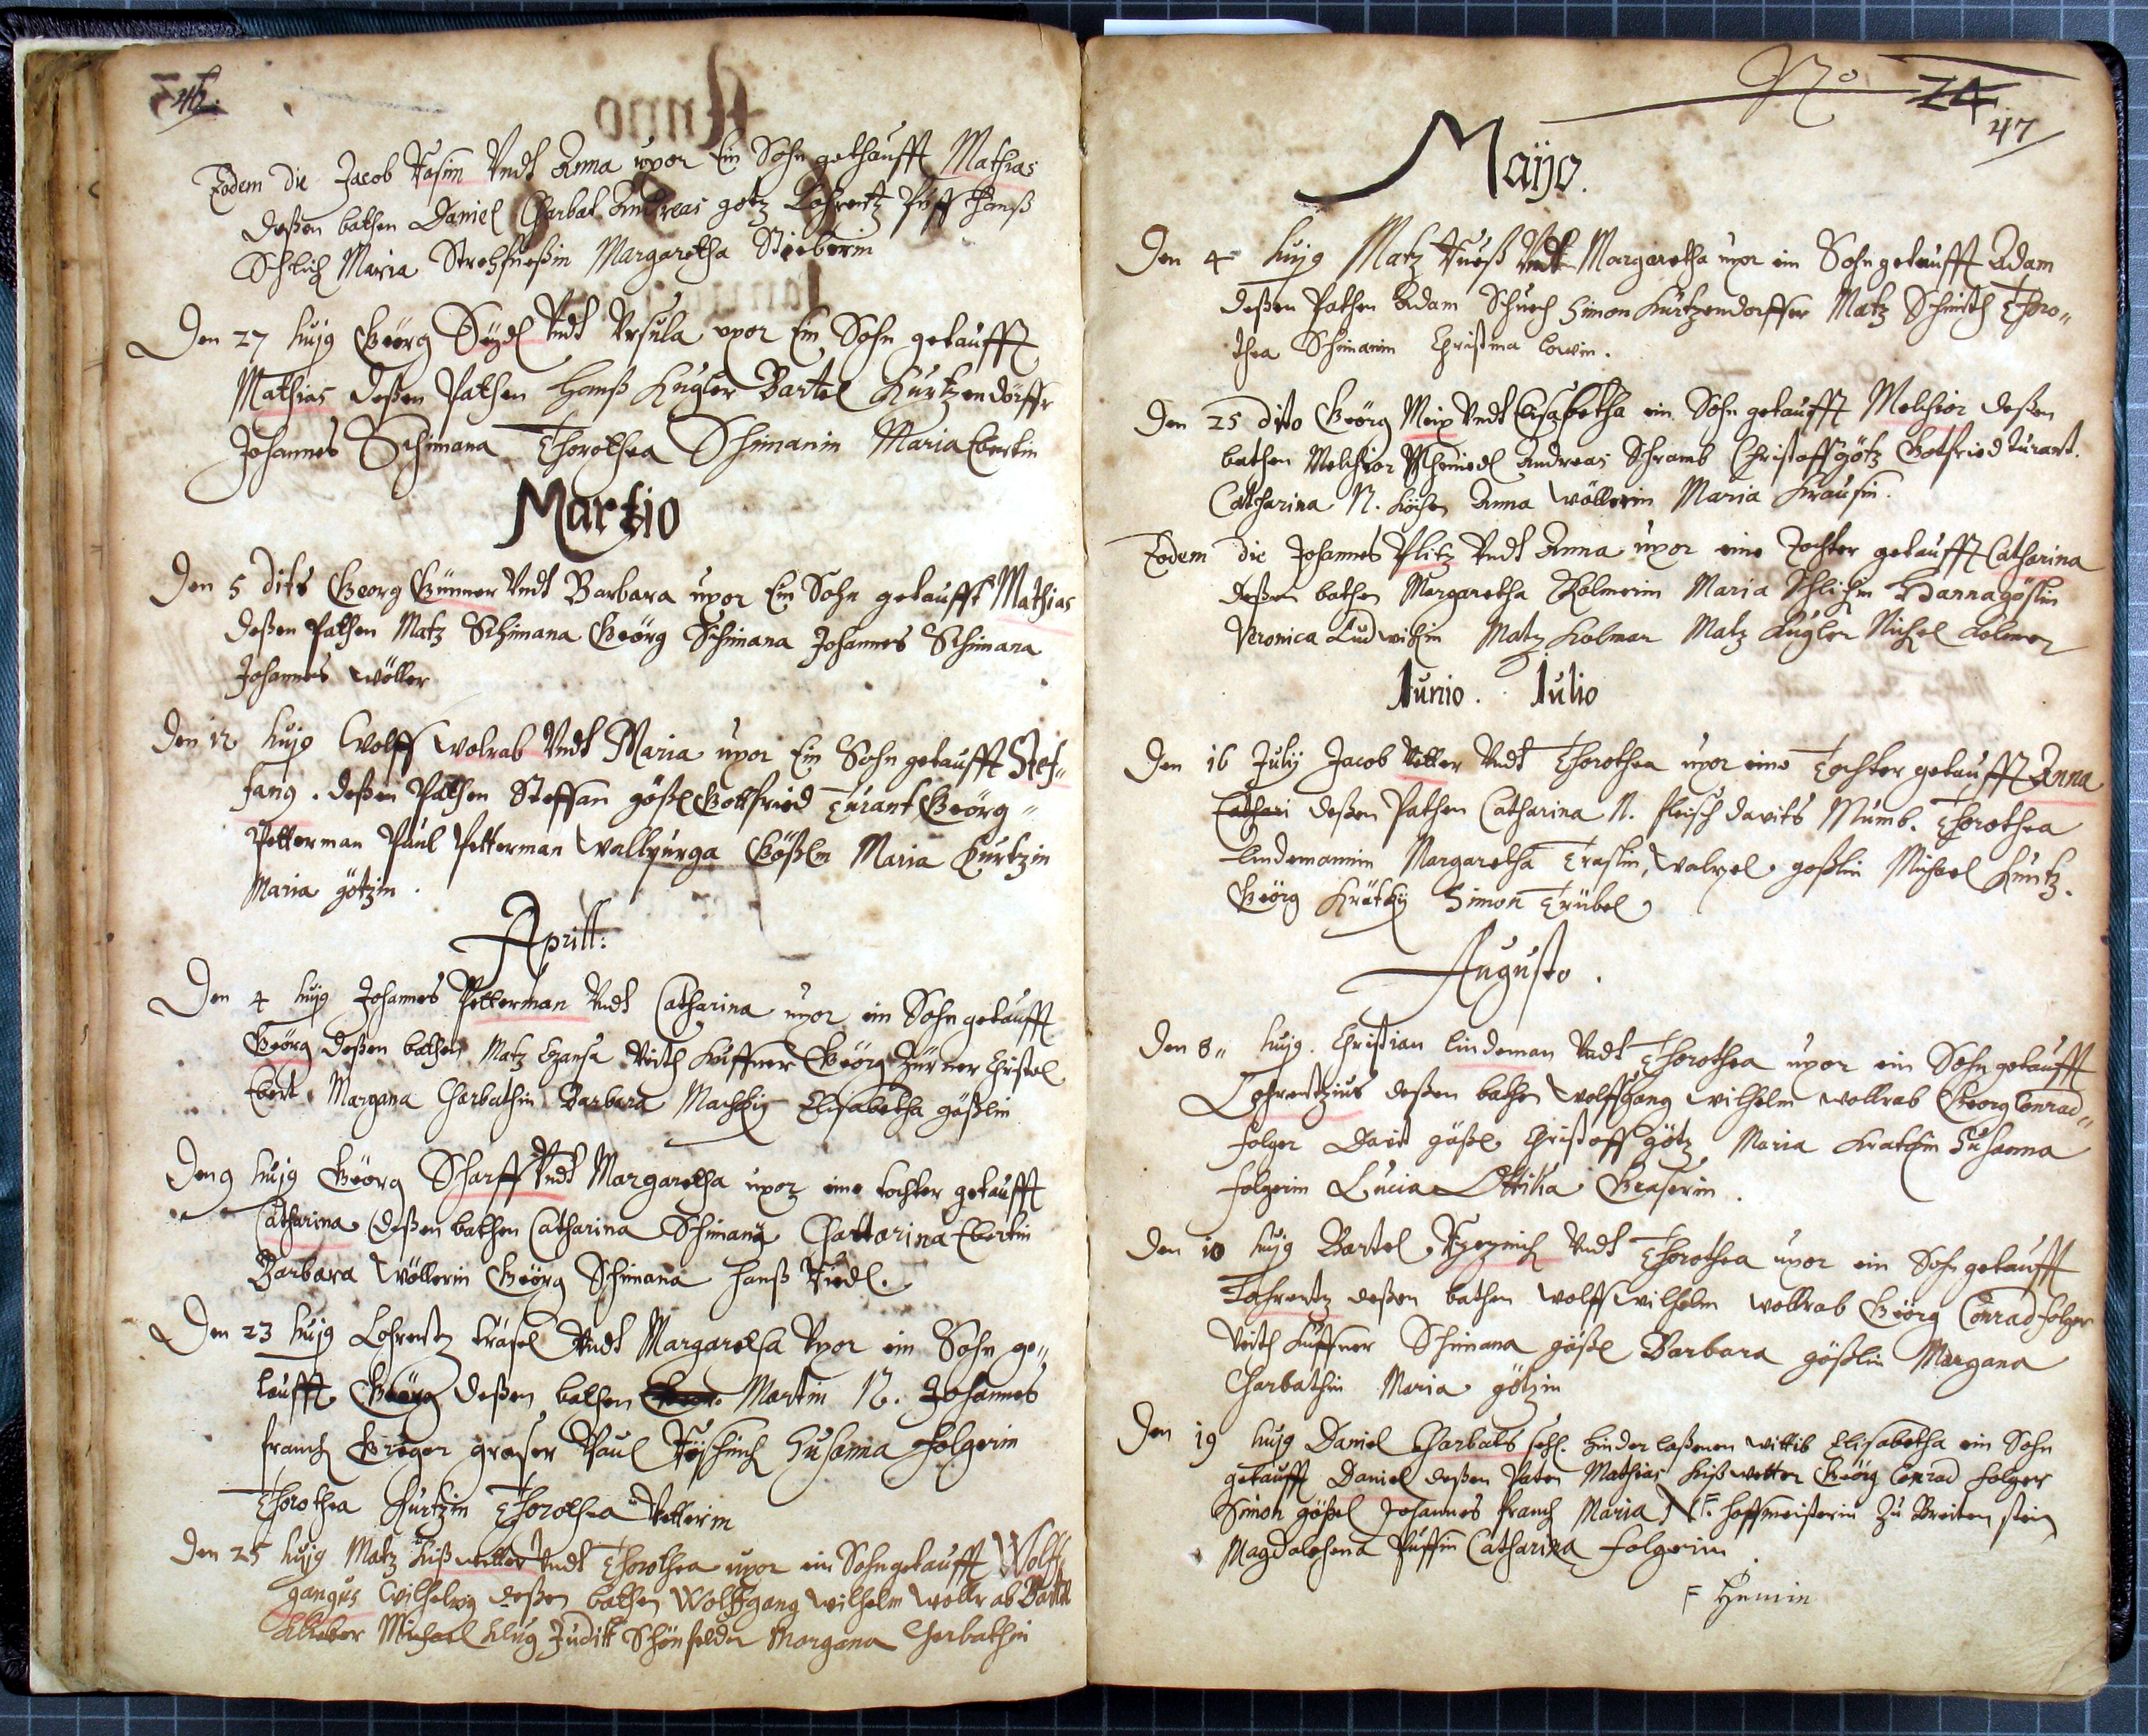 46.
Eodem die Jacob Fasün Undt Anna uxor Ein Sohn gethaufft Mathias
deßen bathen Daniel Charbat Andreas götz Lohrentz Püff Hanß
Schlich Maria Strohfueßin Margaretha Stieberin
Den 27 huj9 Geörg Seydl Undt Ursula uxor Ein Sohn getaufft
Mathias deßen Pathen Hanß Kugler Bartel Kurtzendörffr
Johannes Schimana Thorothea Schimanin Maria Ebertin
Martio
Den 5 dito Georg Günner Undt Barbara uxor Ein Sohn getaufft Mathias
deßen Pathen Matz Schimana Geörg Schimana Johannes Schimana
Johannes Wöller
Den 12 huj9 Wolff Wolrab Undt Maria uxor Ein Sohn getaufft Stef„
fang. deßen Pathen Steffan gößl Gottfried Turant Geörg „
Petterman Paul Petterman Wallpurga Gößlin Maria Kurtzin
Maria götzin.
Aprill:
Den 4 huj9 Johannes Petterman Undt Catharina uxor ein Sohn getaufft
Geörg deßen bathen Matz Hansa Veith Küffner Geörg Zürner Christel
Ebert. Margana Charbathin Barbara Machkin Elisabetha gößlin
Den 9 huj9 Geörg Scharff Undt Margaretha uxor eine tochter getaufft
Catharina deßen bathen Catharina Schimany Chattarina Ebertin
Barbara Wöllerin Geörg Schimana Hanß Riedl.
Den 23 huj9 Lohrentz träsel Undt Margaretha Uxor ein Sohn ge„
taufft Geörg deßen bathen Martin N. Johannes
franch Greger graser Paul Füschüch Susanna folgerin
Thorothea Curtzin Thorothea Vetterin
Den 25 huj9 Matz Kißwetter Undt Thorothea uxor ein Sohn getaufft Wolff„
gangus Wilhelm9 deßen bathen Wolffgang Wilhelm Wollrab Bartel
Klieber Michael Klug Juditt Schönfelder Margana Cherbathin
No 24
47
Maÿo.
Den 4 huj9 Matz Fueß Undt Margaretha uxor ein Sohn getaufft Adam
deßen Pathen Adam Schuch Simon Kurtzendorffer Matz Schmidt Thoro„
thea Schimanin Christina Lowin.
Den 25 dito Geörg Meix Undt Elisabetha ein Sohn getaufft Melchior deßen
bathen Melchior Schmiedl Andreas Schramb Christoff götz Gottfried turant.
Catharina N. Köchin Anna Wöllerin Maria Krausin.
Eodem die Johannes Plitz Undt Anna uxor eine Tochter getaufft Catharina
deßen bathen Margaretha Kolmerin Maria Schlichin Hanna gößlin
Veronica Ludwichin Matz Kolmar Matz Kugler Nichel Kolmer
Junio. Julio
Den 16 Julij Jacob Vetter Undt Thorothea uxor eine Tochter getaufft Anna
Cathari deßen Pathen Catharina N. fleisch davits Mümb. Thorothea
Lindemannin Margaretha Traslin, Walpel goßlin Michael Kuntz.
Geörg Krätky Simon Trübel
Augusto.
Den 8„ huj9. Christian Lindeman Undt Thorothea uxor ein Sohn getaufft
Lohrentzius deßen bathen Wolffgang Wilhelm Wollrab Georg Conrad„
folger Davit gößl Christoff götz Maria Kratchin Susanna
folgerin Lucia Ottilia Graserin.
Den 10 huj9 Bartel Undt Thorothea uxor ein Sohn getaufft
Lohrentz deßen bathen Wolff Wilhelm Wollrab Geörg Conrad folger
Veith Kuffner Schimana gößl Barbara gößlin Margana
Charbathin Maria götzin
Den 19 huj9 Daniel Charbats sehl. hinderlaßenen Wittib Elisabetha ein Sohn
getaufft Daniel deßen Paten Mathias Kißwetter Geörg Conrad folger
Simon gößel Johannes Franch Maria F. hoffmeisterin Zu Breitenstein
Magdalehena Puffin Catharina Folgerin
F Hemin